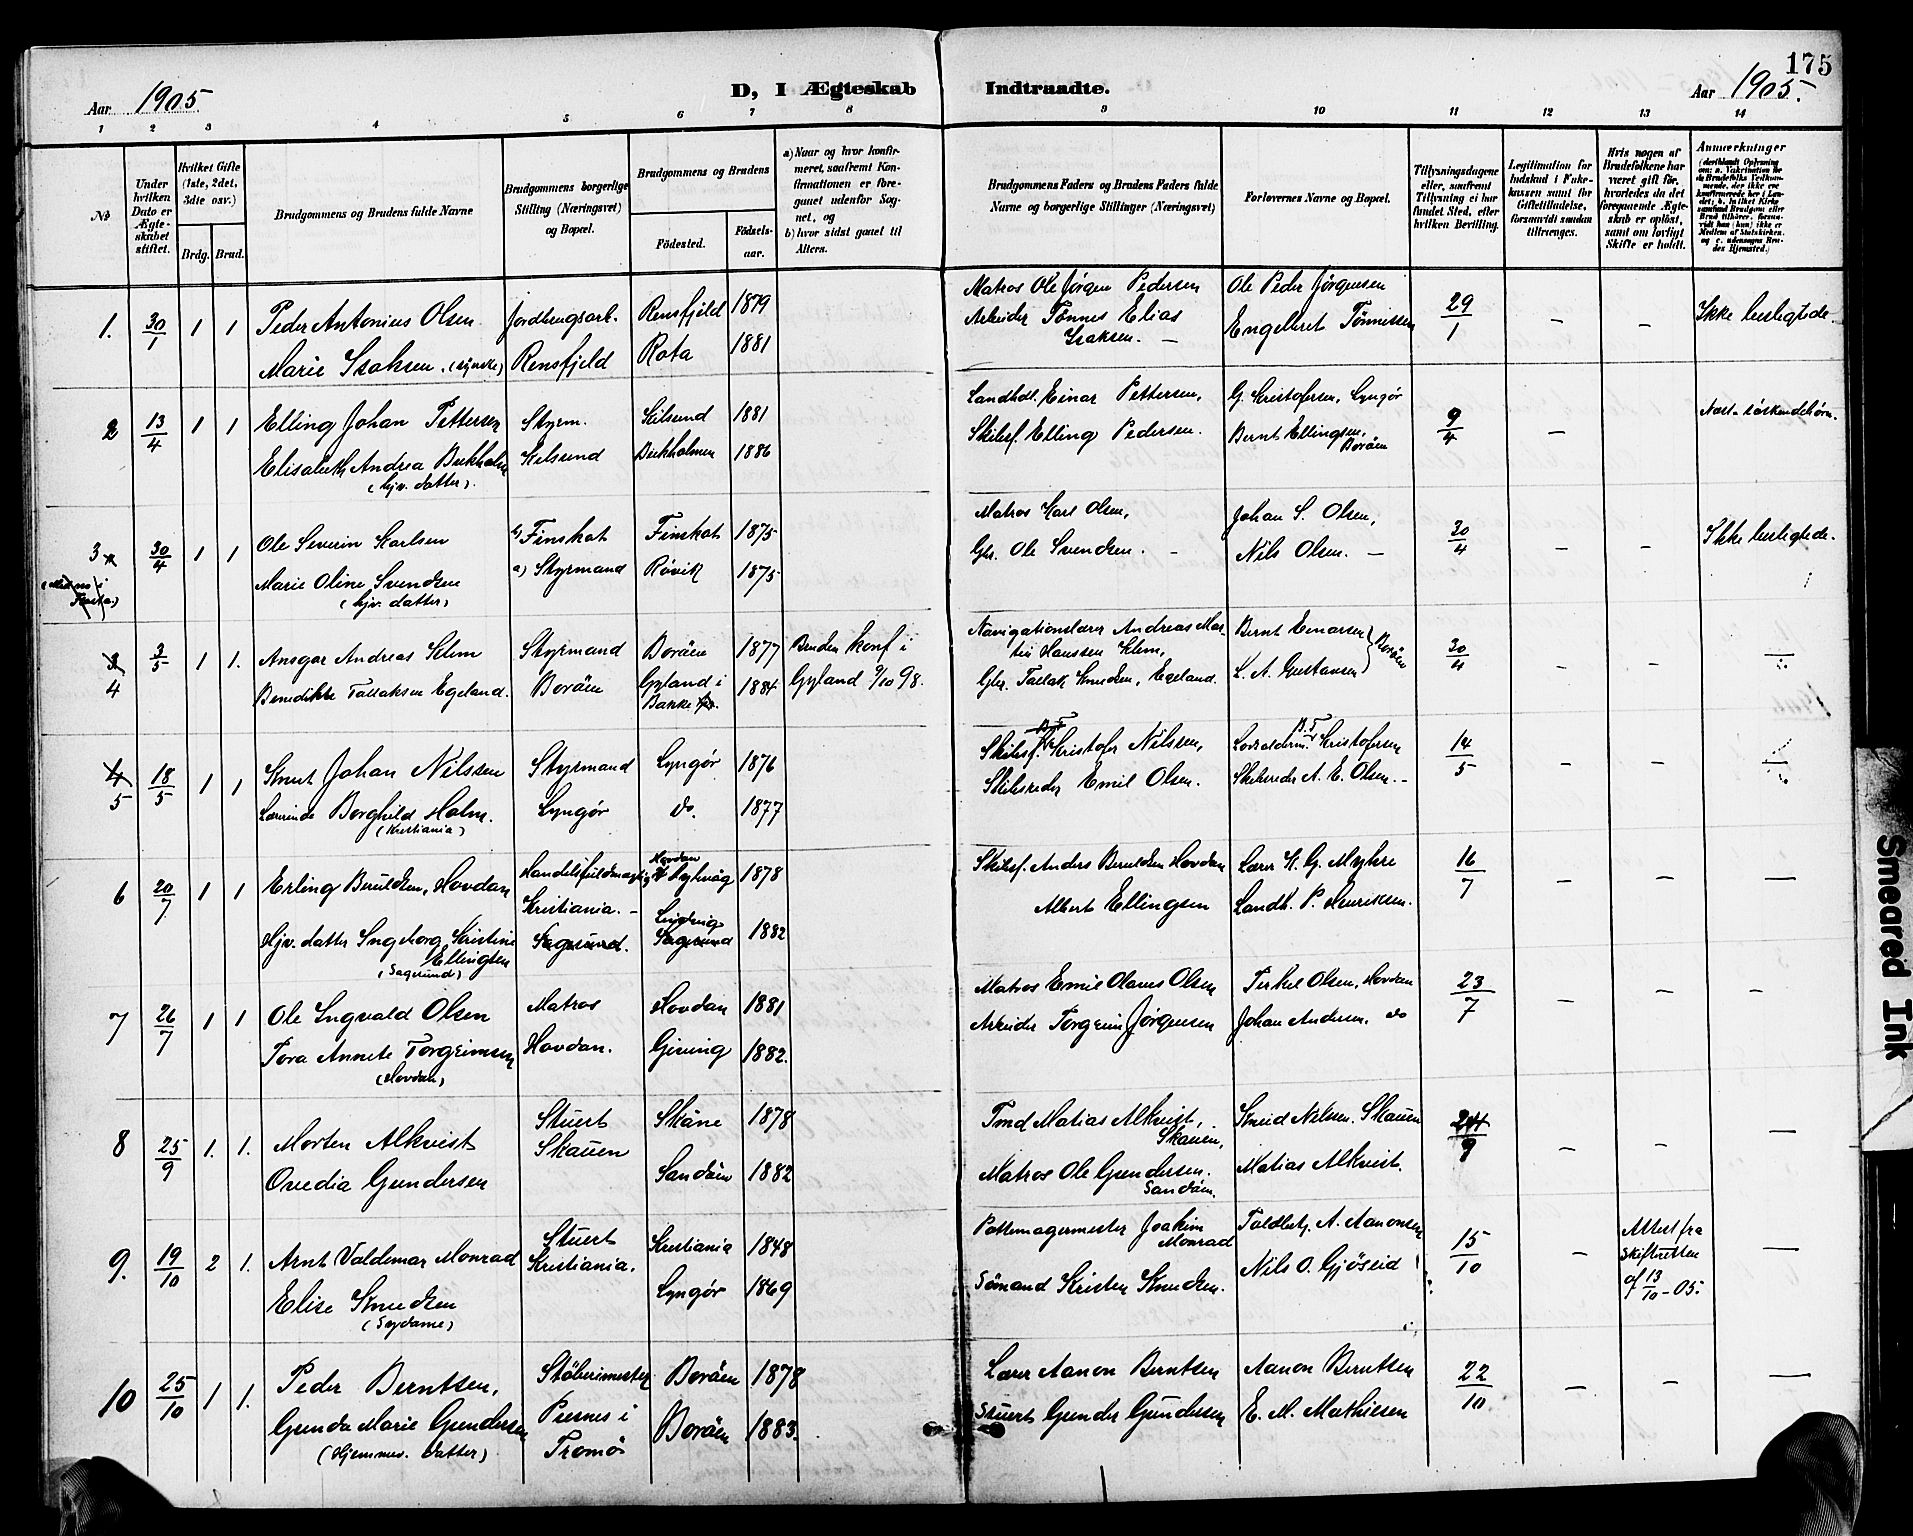 175
Aar 1905
D, I Ægteskab
Indtraadte.
Aar 1905.
1 2 3 4 5 6 7 8 9 10 11 12 13 14
No
Under hvilken Dato er Ægteskabet stiftet.
Hvilket Gifte (1ste, 2det, 3die osv.)
Brdg. Brud.
Brudgommens og Brudens fulde Navne
Brudgommens borgerlige Stilling (Næringsvei) og Bopæl.
Brudgommens og Brudens
Fødested.
Fødselsaar.
a) Naar og hvor konfirmeret, saafremt Konfirmationen er foregaaet udenfor Sognet, og
b) hvor sidst gaaet til Alters.
Brudgommens Faders og Brudens Faders fulde Navne og borgerlige Stillinger (Næringsvei)
Forlovernes Navne og Bopæl.
Tillysningsdagene eller, saafremt Tillysning ei har fundet Sted, efter hvilken Bevilling.
Legitimation for Indskud i Enkekassen samt for Giftetilladelse, forsaavidt saadan tiltrænges.
Hvis nogen af Brudefolkene har været gift før, hvorledes da det foregaaende Ægteskab er opløst, samt om lovligt Skifte er holdt.
Anmerkninger
1. 30/1 1 1 Peder Antonius Olsen Jordbrugsarb. Rensfjeld 1879 Matros Ole Jørgen Pedersen Ole Peder Jørgensen 29/1 – – Ikke beslegtede.
Marie Isaksen. Rensfjeld Rota 1881 Arbeider Tønnes Elias Isaksen. – Engelbret Tønnissen
2 13/4 1 1 Elling Johan Pettersen Styrm. Kilsund 1881 Landhdl. Einar Pettersen, G. Kristofersen, Lyngør 9/4 –
Elisabeth Andrea Birkholm Kilsund Birkholmen 1886 Skibsf. Elling Pedersen. Bernt Ellingsen, Borøen
(hjv. datter).
3 30/4 1 1 Ole Severin Karlsen b) Finskot Finskot 1875 Matros Karl Olsen, Johan S. Olsen, 30/4 – – Ikke beslegtede.
Marie Oline Svendsen a) Styrmand Røvik 1875 Gbr. Ole Svendsen. – Nils Olsen. –
(hjv. datter)
3 4 3/5 1 1. Ansgar Andreas Klem Styrmand Borøen 1877 Bruden konf i Navigationslærer Andreas Martin Hanssen Klem, Bernt Einarsen Borøen 30/4 – –
Benedikte Tallaksen Egeland. Borøen Gyland i Bakke 1884 Gyland 9/10 98. Gbr. Tallak Knudsen, Egeland. L. A. Gustavsen
4 5 18/5 1 1 Knut Johan Nilssen Styrmand Lyngør 1876 Skibsf. Kristofer Nilssen, Lodsolderm. Kristofersen 14/5 – –
Lærerinde Borghild Holm. Lyngør do. 1877 Skibsreder Emil Olsen. Skibsreder A. E. Olsen. –
(Kristiania)
6 20/7 1 1 Erling Beruldsen, Hovdan Handelsfuldmægtig Hovdan 1878 Skibsf. Anders Beruldsen Hovdan Lærer K. G. Myhre 16/7 – – –
Kristiania. – Albert Ellingsen Landh. P. Henriksen.
Hjv. datter Ingeborg Kristine Ellingsen Sagesund. Sagesund 1882
(Sagesund)
7 26/7 1 1 Ole Ingvald Olsen Matros Hovdan 1881 Matros Emil Olaus Olsen Terkel Olsen, Hovdan 23/7 – – –
Tora Annete Torgrimsen Hovdan. Giving 1882. Arbeider Torgrim Jørgensen Johan Andersen. do
(Hovdan)
8 25/9 1. 1. Morten Alkvist Stuert Skåne 1878 Tmd Matias Alkvist, Skauen, Knud Nilsen. Skauen 24/9 – – –
Ovedia Gundersen Skauen Sandøen 1882 Matros Ole Gundersen. Sandøen. Matias Alkvist.
9. 19/10 2 1. Arnt Valdemar Monrad Stuert Kristiania 1848 Pottemagermester Joakim Monrad Toldbetj. A. Aanonsen 15/10 – Attest fra skifteretten af 13/10 – 05. –
Elise Knudsen Kristiania. Lyngør 1869 Sømand Kristen Knudsen. Nils O. Gjøseid
(Sydame)
10 25/10 1 1. Peder Berntsen, Støberimester Borøen 1878 Lærer Aanon Berntsen Aanon Berntsen 22/10 – – –
Gunda Marie Gundersen Pusnes i Tromø Borøen 1883. Stuert Gunder Gundersen E. M. Mathiesen
(Hjemmev. datter)
Smeared Ink